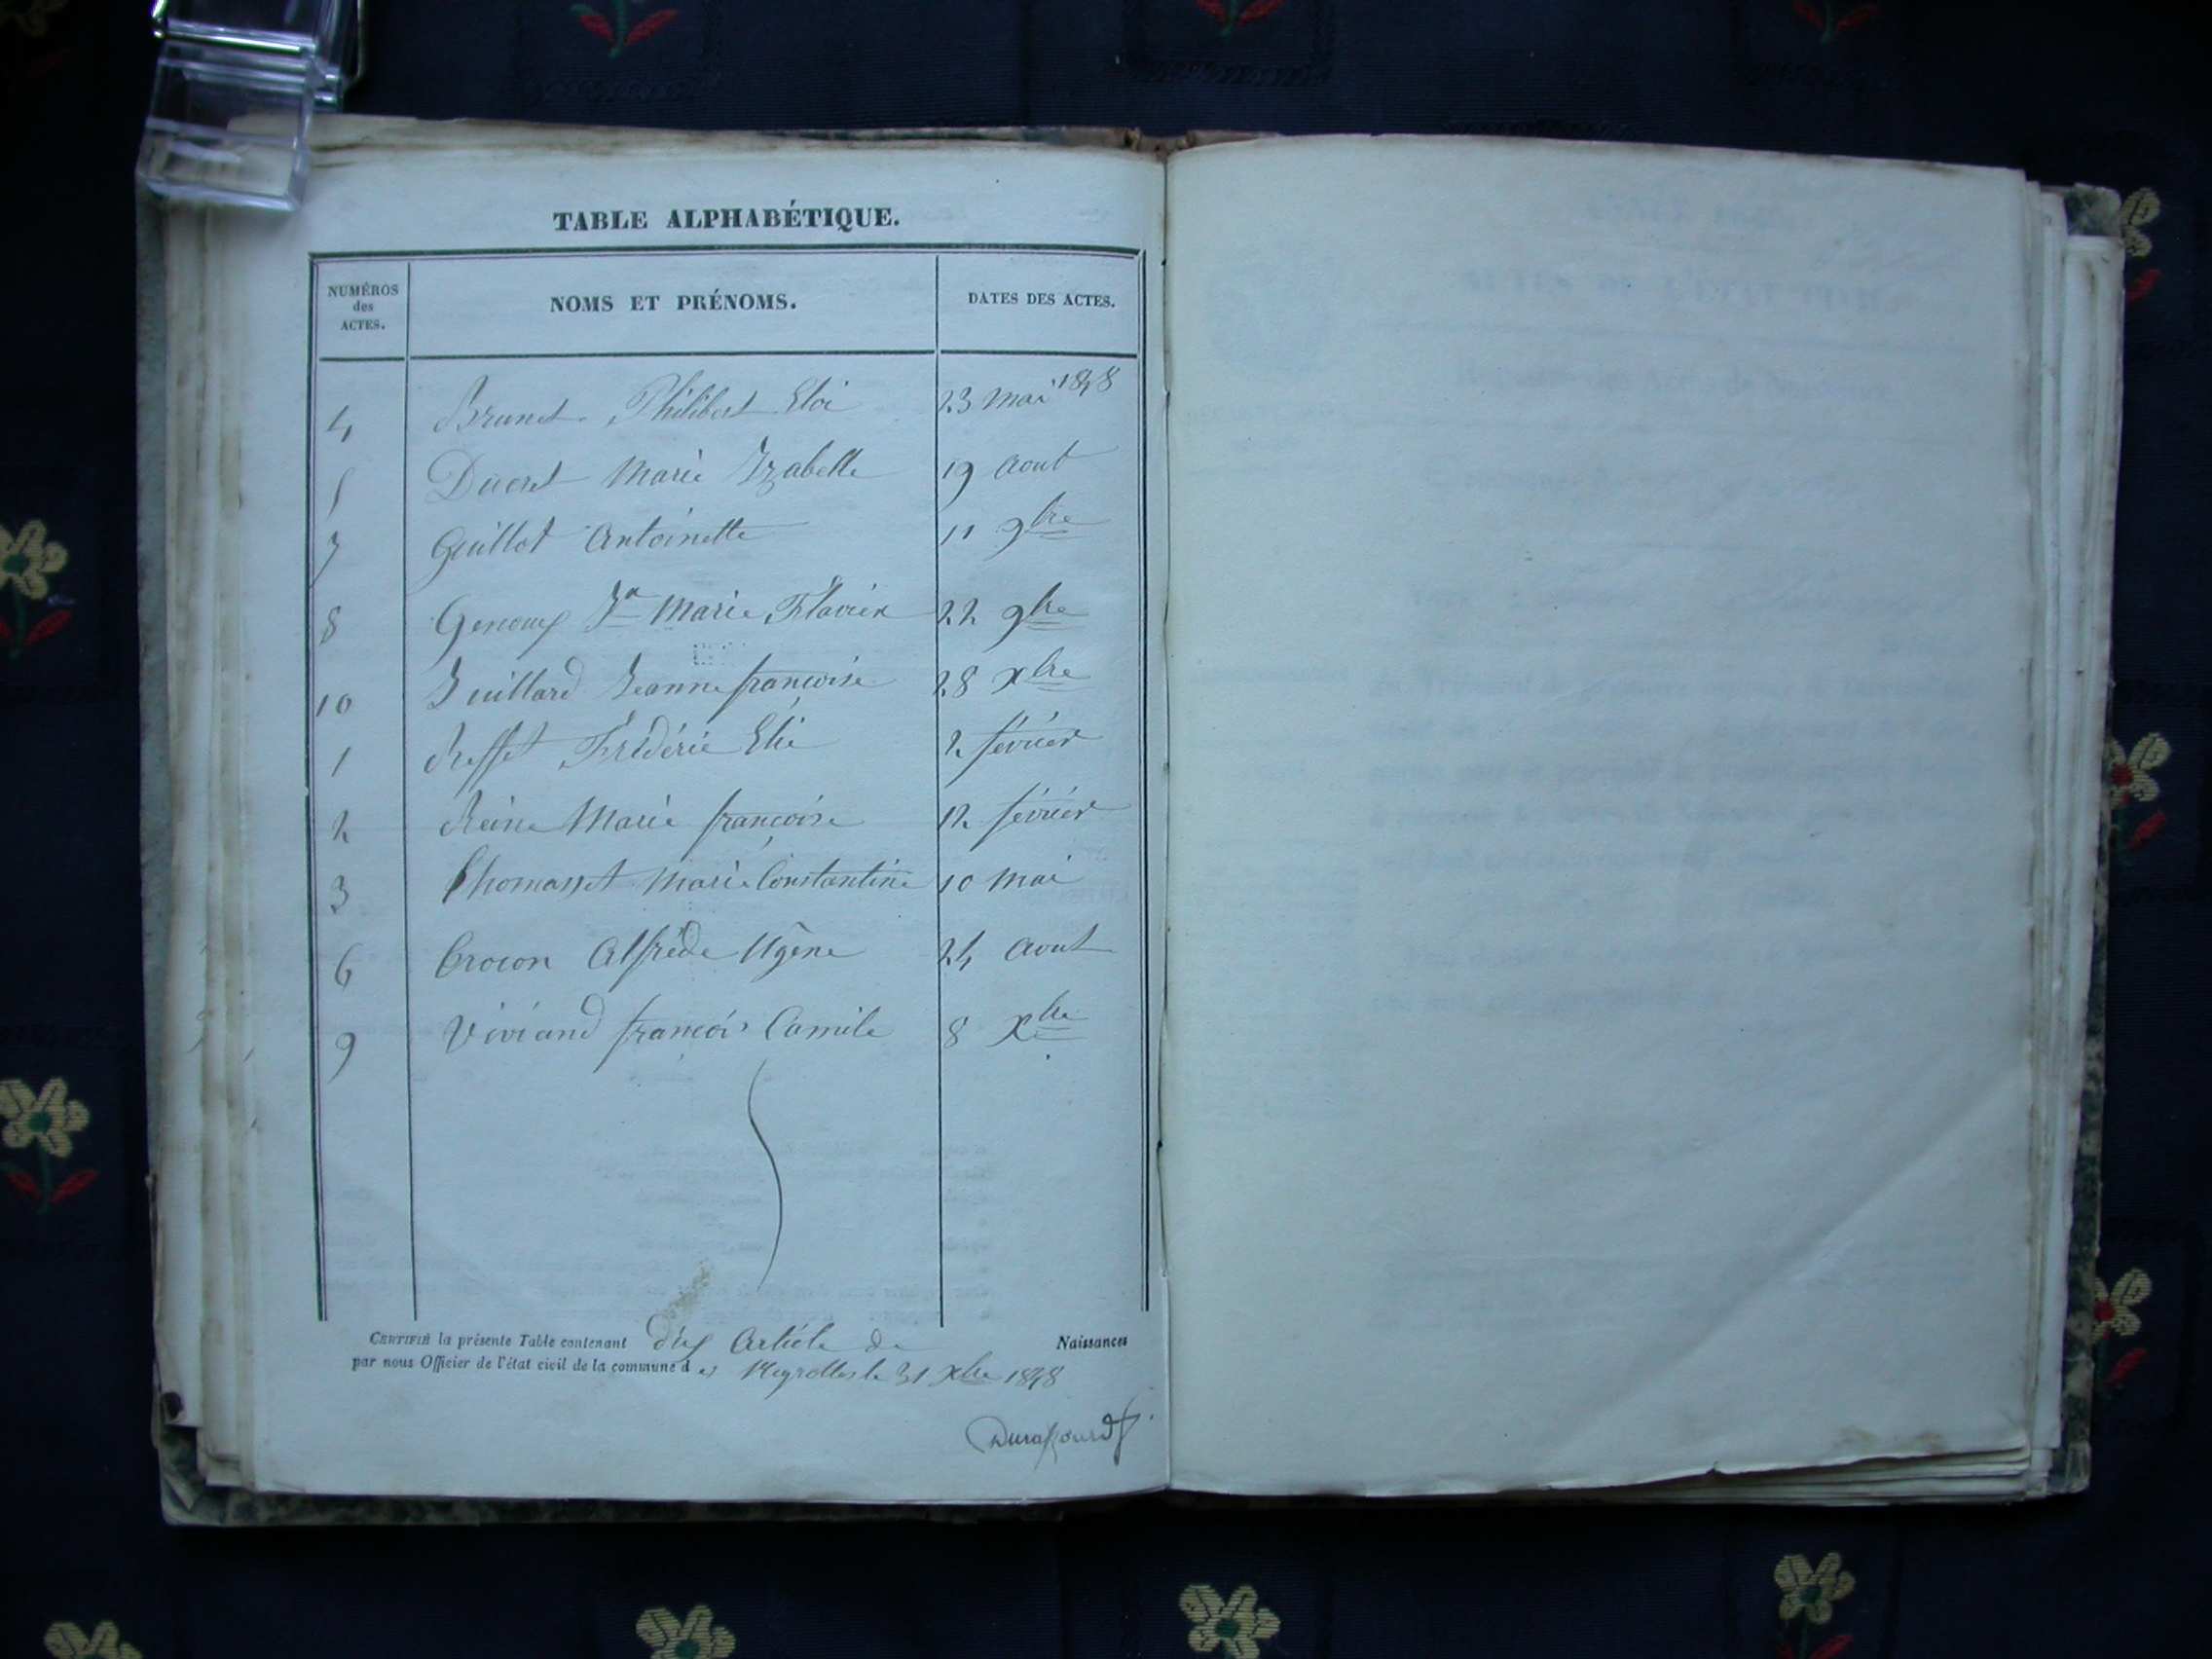 TABLE ALPHABÉTIQUE.
NUMÉROS des ACTES. NOMS ET PRÉNOMS. DATES DES ACTES.
4 Brunet Philibert Eloi 23 mai 1848
5 Ducret Marie Izabelle 19 aout
7 Guillot Antoinette 11 9bre
8 Genoux Marie Flavien 22 9bre
10 Juillard Jeanne françoise 28 xbre
1 Frédéric Elie 2 février
2 Reine Marie françoise 12 février
3 Thomasset Marie Constantine 10 mai
6 Crocon Alfrède Ugène 24 aout
9 Viviand françois Camile 8 Xbre
CERTIFIÉ la présente Table contenant dix Article de Naissances
par nous Officier de l'état civil de la commune d es Neyrolles le 31 Xbre 1848
Duraffourd